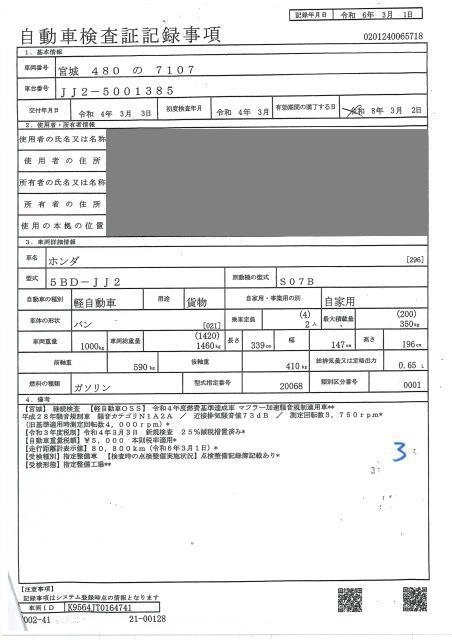 記録年月日 令和 6年 3月 1日
自動車検査証記録事項
0201240065718
1．基本情報
車両番号 宮城 480 の 7107
車台番号 JJ2-5001385
交付年月日 令和 4年 3月 3日 初度検査年月 令和 4年 3月 有効期間の満了する日 令和 8年 3月 2日
2．使用者・所有者情報
使用者の氏名又は名称
使用者の住所
所有者の氏名又は名称
所有者の住所
使用の本拠の位置
3．車両詳細情報
車名 ホンダ [296]
型式 5BD-JJ2 原動機の型式 S07B
自動車の種別 軽自動車 用途 貨物 自家用・事業用の別 自家用
車体の形状 バン [021] 乗車定員 (4) 2人 最大積載量 (200) 350kg
車両重量 1000kg 車両総重量 (1420) 1460kg 長さ 339cm 幅 147cm 高さ 196cm
前軸重 590kg 後軸重 410kg 総排気量又は定格出力 0.65 L
燃料の種類 ガソリン 型式指定番号 20068 類別区分番号 0001
4．備考
【宮城】 継続検査 【軽自動車OSS】 令和4年度燃費基準達成車 マフラー加速騒音規制適用車**
平成28年騒音規制車 騒音カテゴリN1A2A ／ 近接排気騒音値73dB ／ 測定回転数3，750rpm*
(旧基準適用時測定回転数4，000rpm)*
【令和3年度税制】令和4年3月3日 新規検査 25％減税措置済み*
【自動車重量税額】￥5，000 本則税率適用*
【走行距離計表示値】80，800km（令和6年3月1日）*
【受検種別】指定整備車 【検査時の点検整備実施状況】点検整備記録簿記載あり*
【受検形態】指定整備工場**
3
【注意事項】
記録事項はシステム登録時点の情報となります
車両ID K9564JT0164741
002-41 21-00128